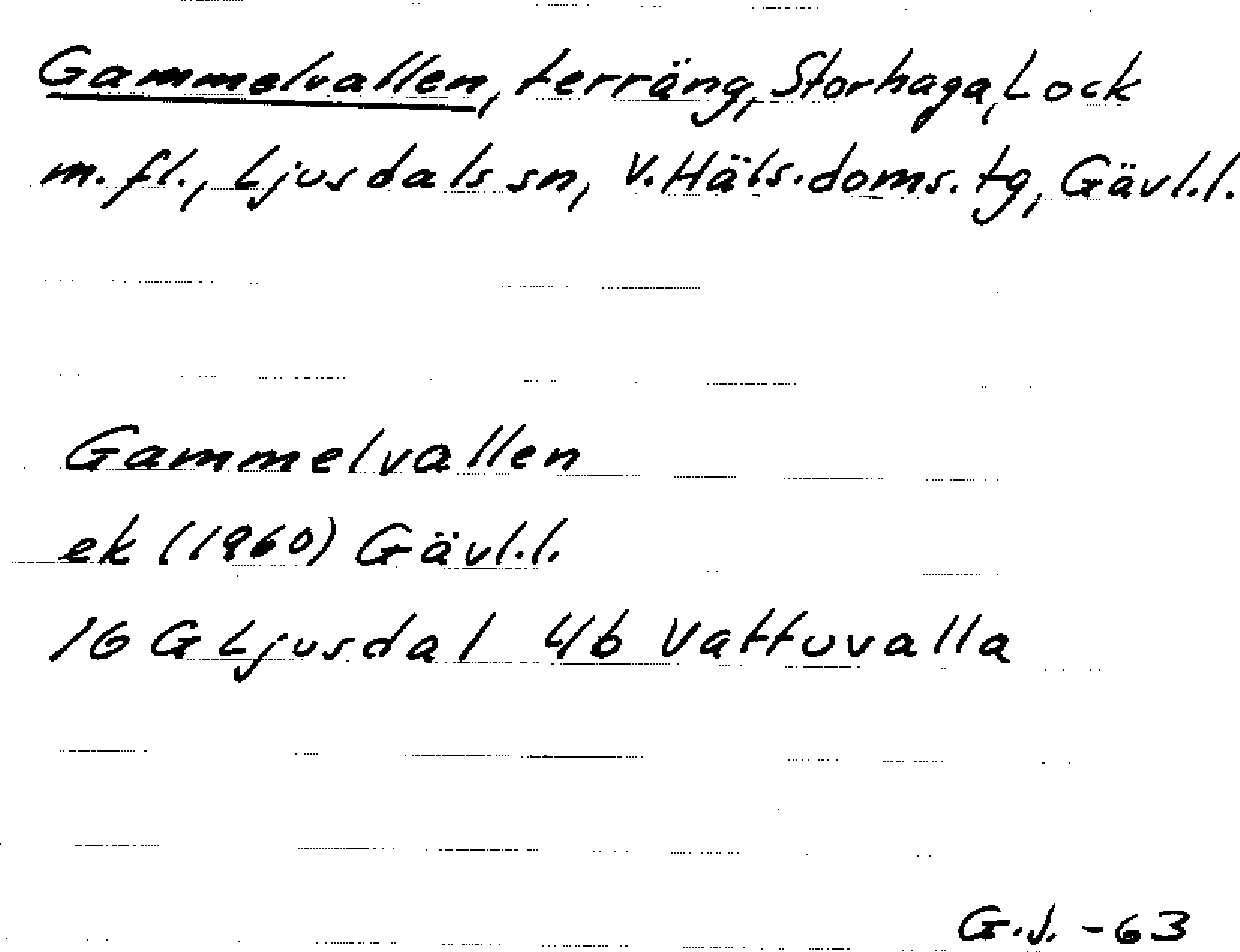 Gammelvallen, terräng, Storhaga, Lock
m.fl., Ljusdals sn, V. Häls. doms. tg, Gävl.l.
Gammelvallen
ek (1960) Gävl.l.
16 G Ljusdal 4b Vattuvalla
G.J. -63